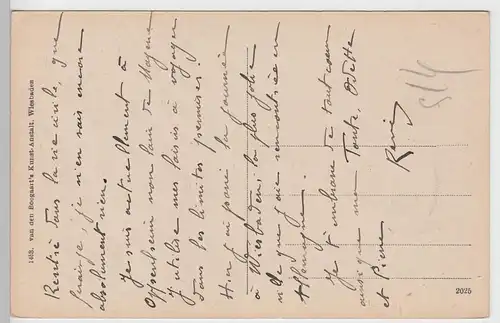 Rentré dans la vie civile, que
ferai-je, je n'en sais encore
absolument rien.
Je suis actuellement à
Oppenheim non loin de Mayence
J'utilise mes loisirs à voyager
dans les limites permises.
Hier j'ai passé la journée
à Wiesbaden, la plus jolie
ville que j'aie rencontrée en
Allemagne.
Je t'embrasse de tout coeur
ainsi que ma Tante, Odette
et Pierre.
René
514
1403. van den Boogaart's Kunst-Anstalt, Wiesbaden
2025